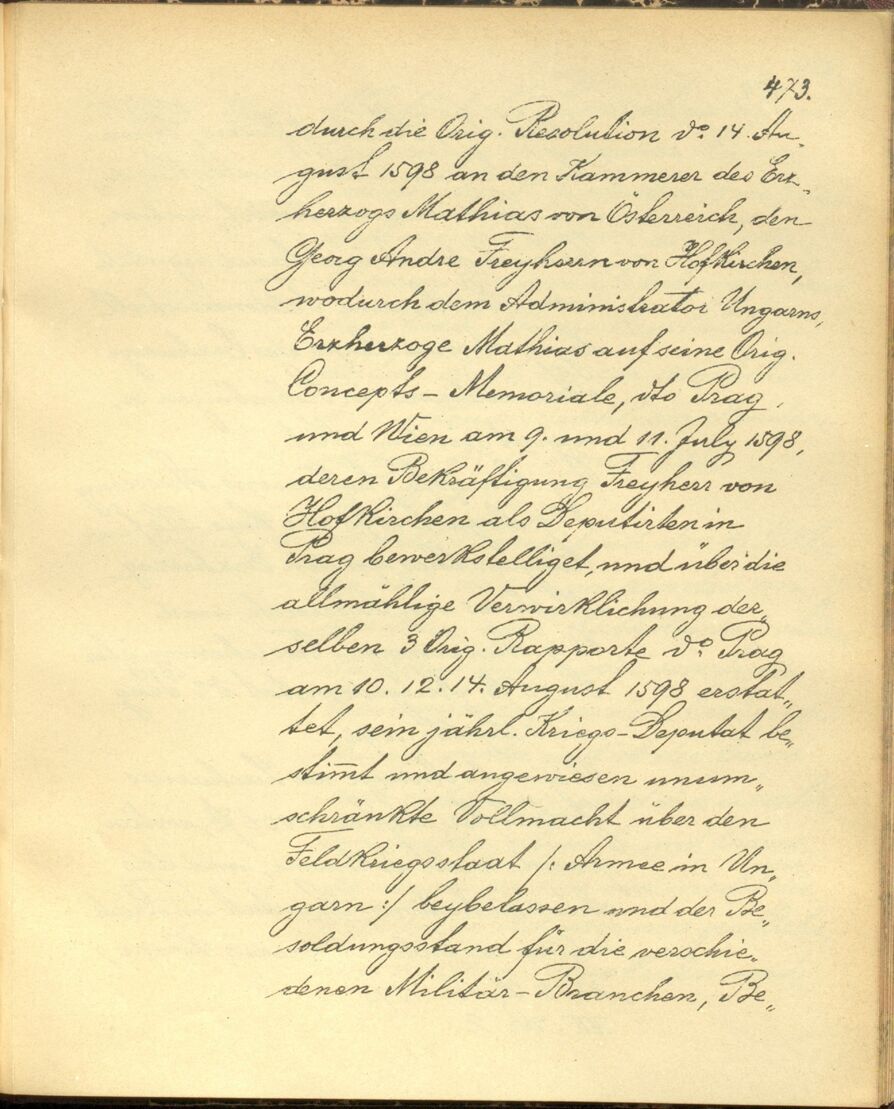 473.
durch die Orig. Resolution dº. 14. Au-
gust 1598 an den Kammerer des Erz-
herzogs Mathias von Österreich, den
Georg Andre Freyherrn von Hofkirchen,
wodurch dem Administrator Ungarns,
Erzherzoge Mathias auf seine Orig.
Concepts - Memoriale, dto Prag,
und Wien am 9. und 11. July 1598,
deren Bekräftigung Freyherr von
Hofkirchen als Deputirten in
Prag bewerkstelliget, und über die
allmählige Verwirklichung der„
selben 3 Orig. Rapporte dº. Prag
am 10. 12. 14. August 1598 erstat„
tet, sein jährl. Kriegs-Deputat be„
stim̄t und angewiesen unum„
schränkte Vollmacht über den
Feldkriegsstaat /: Armee in Un„
garn :/ beybelassen und der Be„
soldungsstand für die verschie„
denen Militär - Branchen, Be„